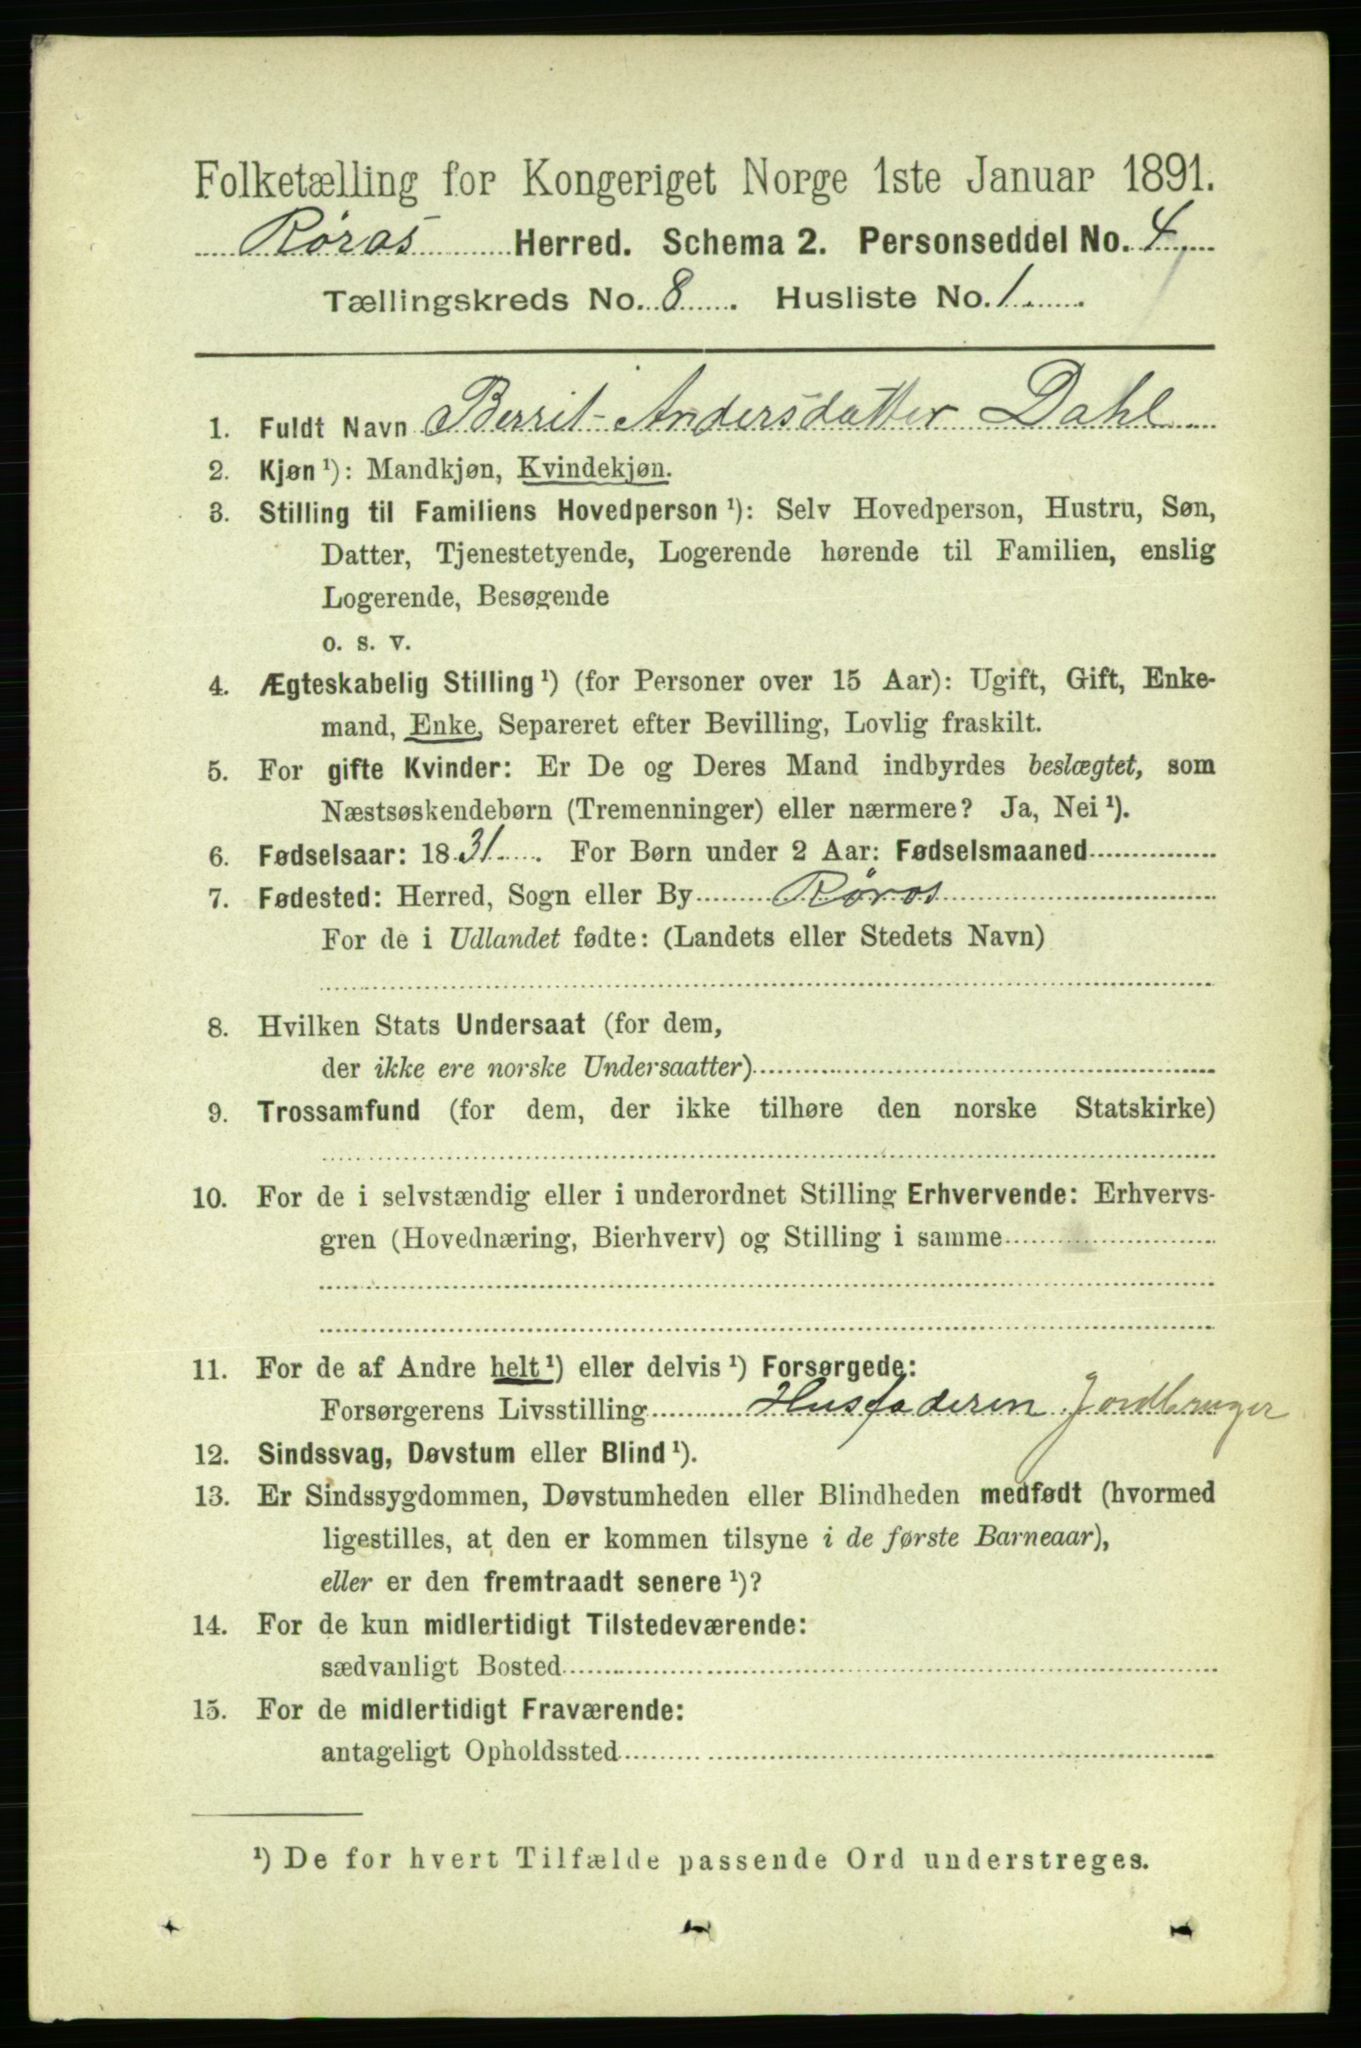 Folketælling for Kongeriget Norge 1ste Januar 1891.
Røras Herred. Schema 2. Personseddel No. 4
Tællingskreds No. 8. Husliste No. 1
1. Fuldt Navn Berrit Andersdatter Dahl
2. Kjøn ¹): Mandkjøn, Kvindekjøn.
3. Stilling til Familiens Hovedperson ¹): Selv Hovedperson, Hustru, Søn,
Datter, Tjenestetyende, Logerende hørende til Familien, enslig
Logerende, Besøgende
o. s. v.
4. Ægteskabelig Stilling ¹) (for Personer over 15 Aar): Ugift, Gift, Enke-
mand, Enke, Separeret efter Bevilling, Lovlig fraskilt.
5. For gifte Kvinder: Er De og Deres Mand indbyrdes beslægtet, som
Næstsøskendebørn (Tremenninger) eller nærmere? Ja, Nei ¹).
6. Fødselsaar: 1831. For Børn under 2 Aar: Fødselsmaaned
7. Fødested: Herred, Sogn eller By Røros
For de i Udlandet fødte: (Landets eller Stedets Navn)
8. Hvilken Stats Undersaat (for dem,
der ikke ere norske Undersaatter)
9. Trossamfund (for dem, der ikke tilhøre den norske Statskirke)
10. For de i selvstændig eller i underordnet Stilling Erhvervende: Erhvervs-
gren (Hovednæring, Bierhverv) og Stilling i samme
11. For de af Andre helt ¹) eller delvis ¹) Forsørgede:
Forsørgerens Livsstilling Husfaderen Jordbruger
12. Sindssvag, Døvstum eller Blind ¹).
13. Er Sindssygdommen, Døvstumheden eller Blindheden medfødt (hvormed
ligestilles, at den er kommen tilsyne i de første Barneaar),
eller er den fremtraadt senere ¹)?
14. For de kun midlertidigt Tilstedeværende:
sædvanligt Bosted
15. For de midlertidigt Fraværende:
antageligt Opholdssted
¹) De for hvert Tilfælde passende Ord understreges.